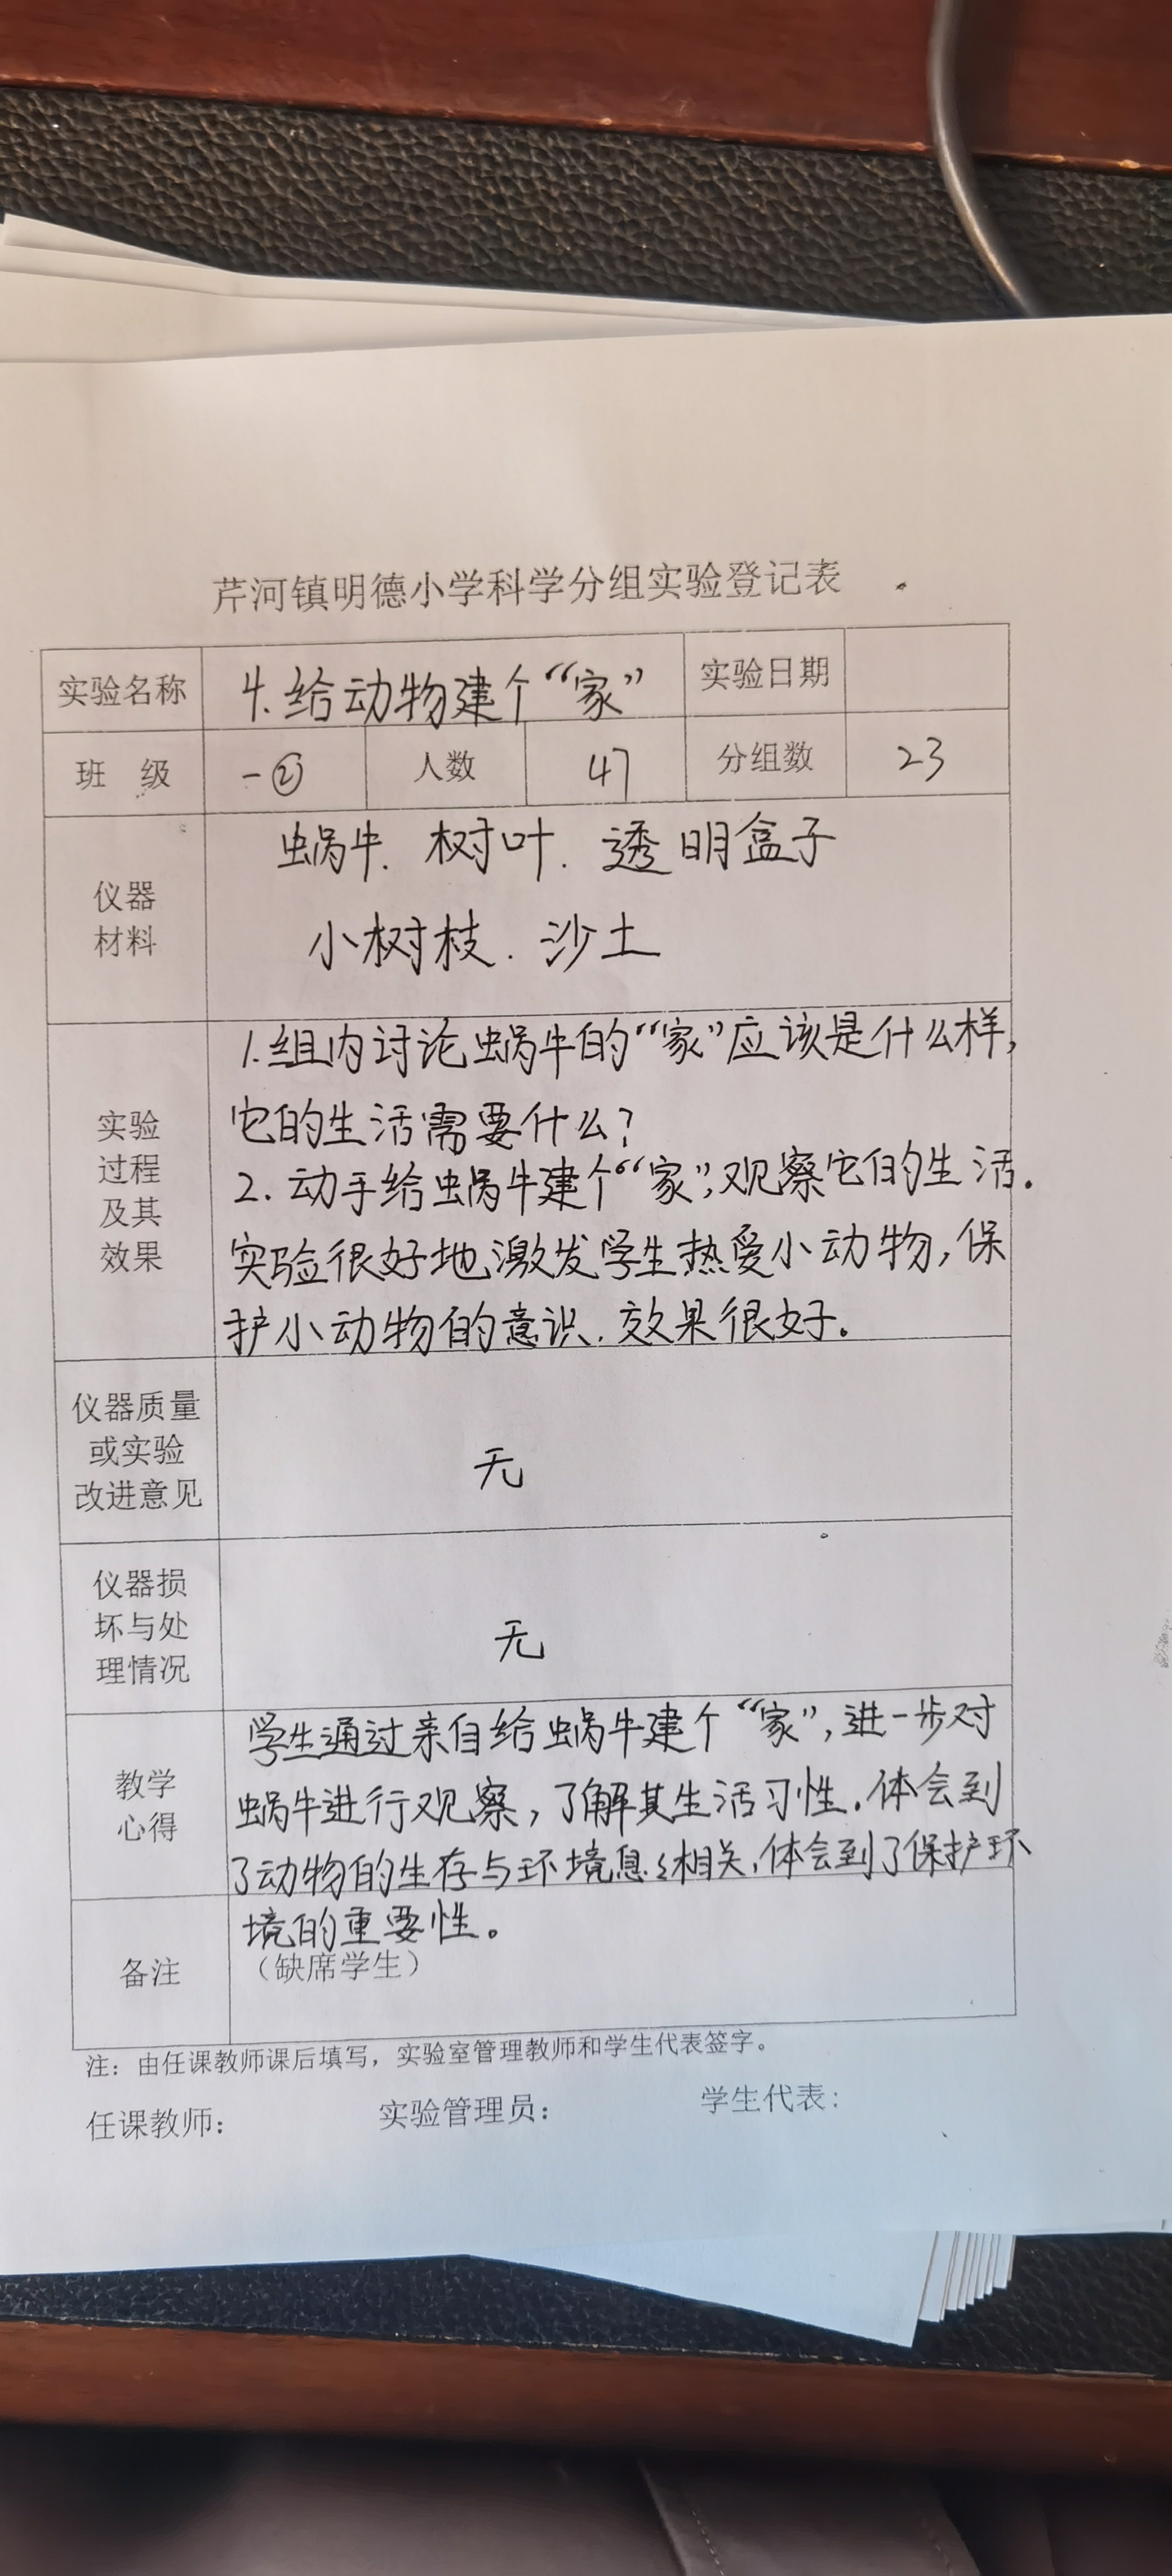 芹河镇明德小学科学分组实验登记表
实验名称 4.给动物建个“家” 实验日期
班 级 一② 人数 47 分组数 23
仪器
材料
蜗牛. 树叶. 透明盒子
小树枝. 沙土
实验
过程
及其
效果
1.组内讨论蜗牛的“家”应该是什么样,
它的生活需要什么?
2.动手给蜗牛建个“家”,观察它的生活.
实验很好地激发学生热爱小动物,保
护小动物的意识.效果很好.
仪器质量
或实验
改进意见
无
仪器损
坏与处
理情况
无
教学
心得
学生通过亲自给蜗牛建个“家”,进一步对
蜗牛进行观察,了解其生活习性.体会到
了动物的生存与环境息々相关,体会到了保护环
境的重要性。
备注 （缺席学生）
注：由任课教师课后填写，实验室管理教师和学生代表签字。
任课教师： 实验管理员： 学生代表：